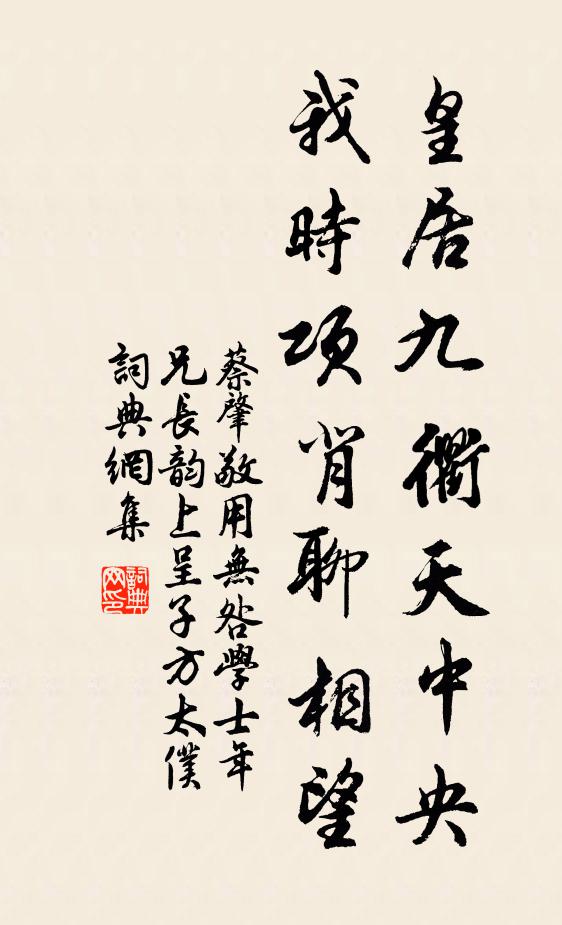 皇居九衢天中央
我時項背聊相望
蔡肇敬用無咎學士年
兄長韵上呈子方太僕
詞典網集
詞典网印